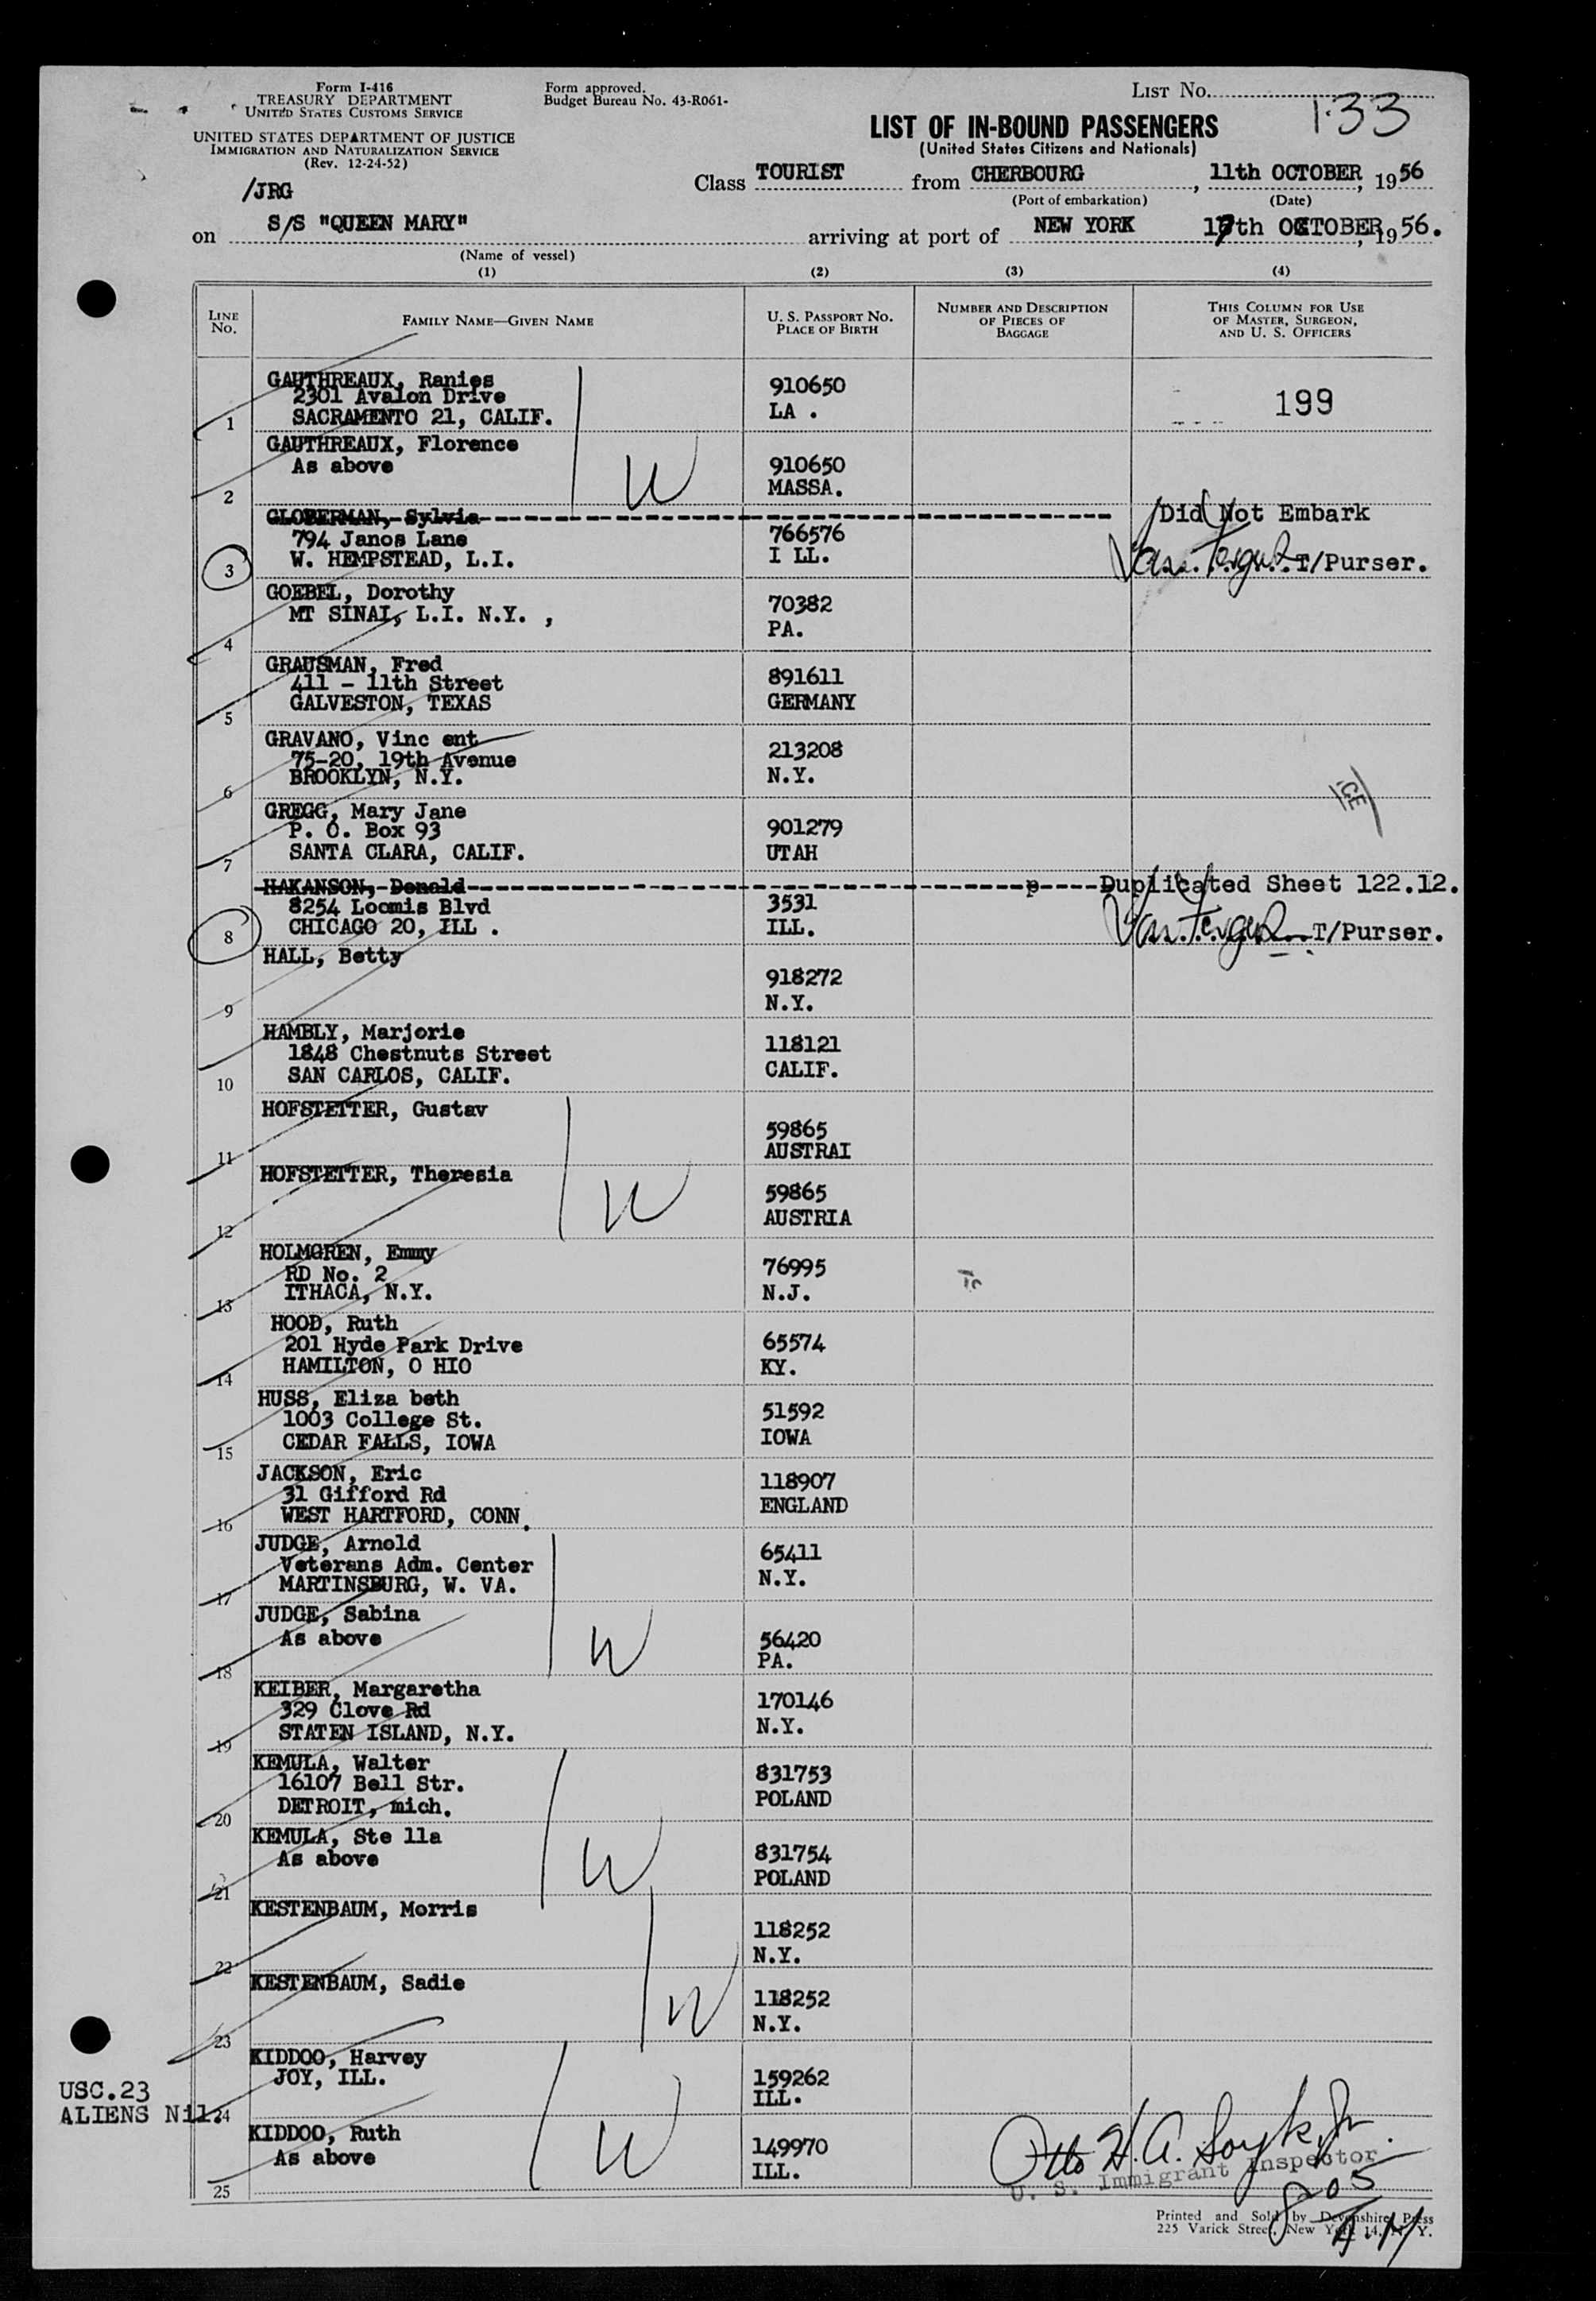 Form I-416
TREASURY DEPARTMENT
UNITED STATES CUSTOMS SERVICE
UNITED STATES DEPARTMENT OF JUSTICE
IMMIGRATION AND NATURALIZATION SERVICE
(Rev. 12-24-52)
Form approved.
Budget Bureau No. 43-R061-
LIST No.
133
LIST OF IN-BOUND PASSENGERS
(United States Citizens and Nationals)
/JRG
Class TOURIST from CHERBOURG, 11th OCTOBER, 1956
(Port of embarkation) (Date)
on S/S "QUEEN MARY" arriving at port of NEW YORK 17th OCTOBER, 1956.
(Name of vessel)
(1) (2) (3) (4)
LINE No.
FAMILY NAME—GIVEN NAME
U. S. PASSPORT No.
PLACE OF BIRTH
NUMBER AND DESCRIPTION
OF PIECES OF
BAGGAGE
THIS COLUMN FOR USE
OF MASTER, SURGEON,
AND U. S. OFFICERS
GAUTHREAUX, Ranies
2301 Avalon Drive 910650
1 SACRAMENTO 21, CALIF. LA . 199
GAUTHREAUX, Florence
As above 910650
2 MASSA.
W
GLOBERMAN, Sylvia Did Not Embark
794 Janos Lane 766576
3 W. HEMPSTEAD, L.I. I LL. T/Purser.
GOEBEL, Dorothy
MT SINAI, L.I. N.Y. , 70382
4 PA.
GRAUSMAN, Fred
411 - 11th Street 891611
5 GALVESTON, TEXAS GERMANY
GRAVANO, Vinc ent
75-20, 19th Avenue 213208
6 BROOKLYN, N.Y. N.Y.
GREGG, Mary Jane
P. O. Box 93 901279
7 SANTA CLARA, CALIF. UTAH
HAKANSON, Donald p Duplicated Sheet 122.12.
8254 Loomis Blvd 3531
8 CHICAGO 20, ILL . ILL. T/Purser.
HALL, Betty
918272
9 N.Y.
HAMBLY, Marjorie
1848 Chestnuts Street 118121
10 SAN CARLOS, CALIF. CALIF.
HOFSTETTER, Gustav
59865
11 AUSTRAI
HOFSTETTER, Theresia
59865
12 AUSTRIA
W
HOLMGREN, Emmy
RD No. 2 76995
13 ITHACA, N.Y. N.J.
HOOD, Ruth
201 Hyde Park Drive 65574
14 HAMILTON, O HIO KY.
HUSS, Eliza beth
1003 College St. 51592
15 CEDAR FALLS, IOWA IOWA
JACKSON, Eric
31 Gifford Rd 118907
16 WEST HARTFORD, CONN. ENGLAND
JUDGE, Arnold
Veterans Adm. Center 65411
17 MARTINSBURG, W. VA. N.Y.
JUDGE, Sabina
As above 56420
18 PA.
W
KEIBER, Margaretha
329 Clove Rd 170146
19 STATEN ISLAND, N.Y. N.Y.
KEMULA, Walter
16107 Bell Str. 831753
20 DETROIT, mich. POLAND
KEMULA, Ste lla
As above 831754
21 POLAND
W
KESTENBAUM, Morris
118252
22 N.Y.
KESTENBAUM, Sadie
118252
23 N.Y.
W
KIDDOO, Harvey
JOY, ILL. 159262
24 ILL.
USC.23
ALIENS Nil.
KIDDOO, Ruth
As above 149970
25 ILL.
W
Otto H. A. Soyk, Jr.
U. S. Immigrant Inspector
805
A.M
Printed and Sold by Devonshire Press
225 Varick Street, New York 14, N. Y.